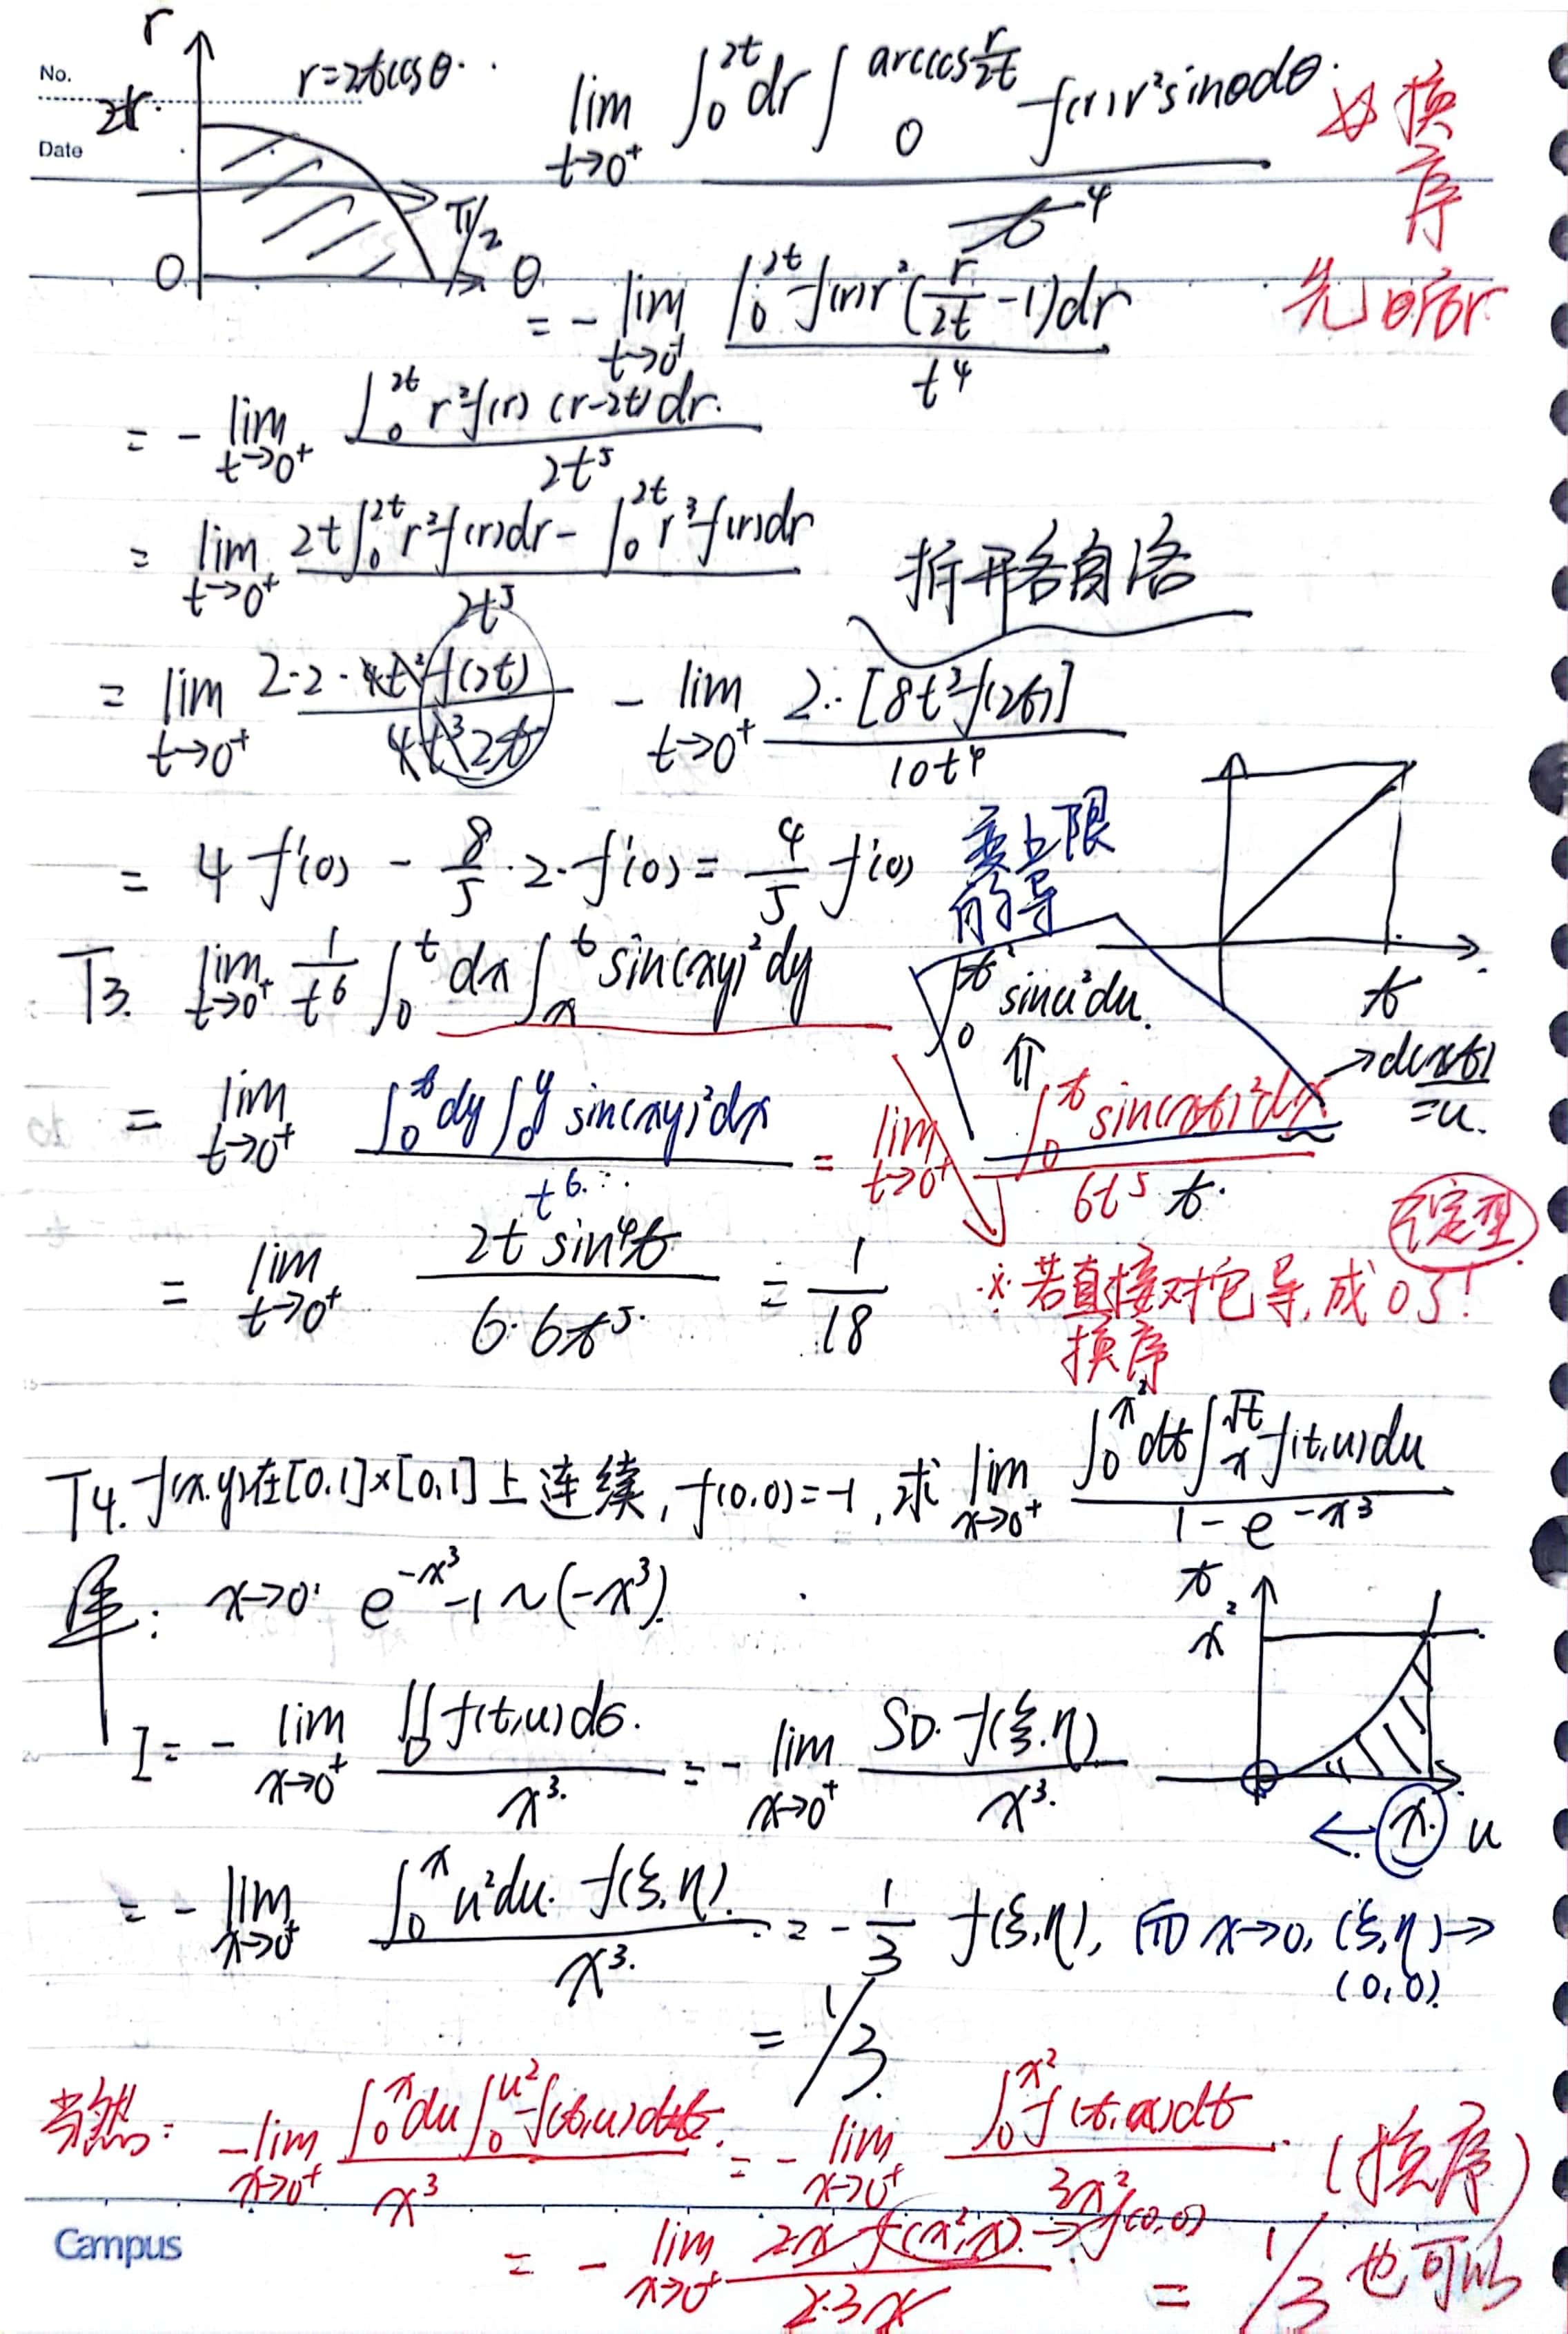 No.
Date
r
2t
r=2tcosθ
0
π/2
θ
lim t→0⁺ ∫₀^{2t} dr ∫₀^{arccos r/2t} f(r)r²sinθdθ / t⁴
换序
先θ后r
= - lim t→0⁺ ∫₀^{2t} f(r)r²(r/2t -1)dr / t⁴
= - lim t→0⁺ ∫₀^{2t} r²f(r)(r-2t)dr / 2t⁵
= lim t→0⁺ 2t∫₀^{2t} r²f(r)dr - ∫₀^{2t} r³f(r)dr / 2t⁵
拆开各自洛
= lim t→0⁺ 2·2·4t²f(2t) / 4t³2t - lim t→0⁺ 2·[8t³f(2t)] / 10t⁴
= 4f'(0) - 8/5·2·f'(0) = 4/5 f'(0)
变上限
求导
T3. lim t→0⁺ 1/t⁶ ∫₀^t dx ∫ₓ^t sin(xy)²dy
∫₀^{t²} sinu²du
⇑
t
→d(xt)
=u.
= lim t→0⁺ ∫₀^t dy ∫₀^y sin(xy)²dx / t⁶ = lim t→0⁺ ∫₀^t sin(xt)²dx / 6t⁵ t
= lim t→0⁺ 2t sin⁴t / 6·6t⁵ = 1/18
※若直接对它导,成0了!
换序
T4. f(x,y)在[0,1]×[0,1]上连续,f(0,0)=-1,求 lim x→0⁺ ∫₀^{x²} dt ∫ₓ^{√t} f(t,u)du / 1-e^{-x³}
x→0 e^{-x³}-1~(-x³).
t
x²
I= - lim x→0⁺ ∬_D f(t,u)dσ / x³ = - lim x→0⁺ S_D·f(ξ,η) / x³
← x u
= - lim x→0⁺ ∫₀^x u²du·f(ξ,η) / x³ = - 1/3 f(ξ,η), 而x→0, (ξ,η)→
(0,0)
= 1/3.
当然: -lim x→0⁺ ∫₀^x du ∫₀^{u²} f(t,u)dt / x³ = - lim x→0⁺ ∫₀^{x²} f(t,x)dt / 3x² (换序)
= - lim x→0⁺ 2x f(x²,x) →f(0,0) / 2·3x = 1/3 也可以
Campus